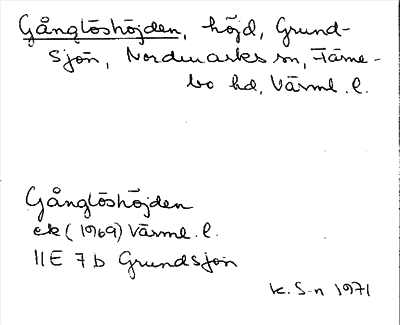 Gånglöshöjden, höjd, Grund-
sjön, Nordmarks sn, Färne-
bo hd, Värml. l.
Gånglöshöjden
ek (1969) Värml. l.
11E 7b Grundsjön
K. S-n 1971